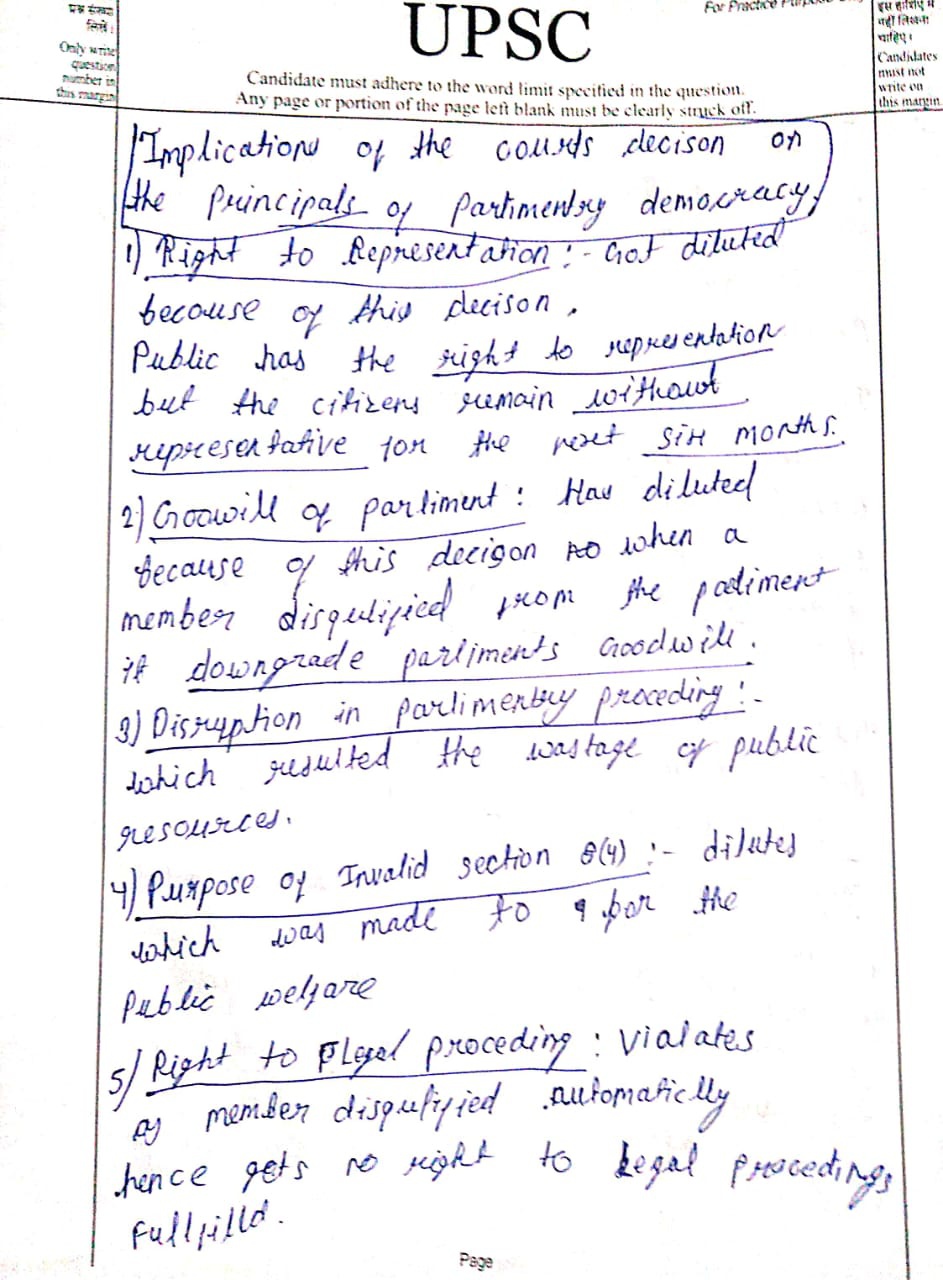 प्रश्न संख्या
लिखें।
Only write
question
number in
this margin
UPSC
For Practice Purpose
Candidate must adhere to the word limit specified in the question.
Any page or portion of the page left blank must be clearly struck off.
इस हाशिए में
नहीं लिखना
चाहिए।
Candidates
must not
write on
this margin.
Implications of the courts decison on
the Principals of Parlimentry democracy
1) Right to Representation :- Got diluted
because of this decison.
Public has the right to representation
but the citizens remain without
representative for the next six months.
2) Goowill of parliment : Has diluted
because of this decison as when a
member disqulified from the parliment
it downgrade parliments Goodwill.
3) Disruption in Parlimentry proceding :-
which resulted the wastage of public
resources.
4) Purpose of Invalid section 8(4) :- dilutes
which was made to for the
Public welfare
5) Right to Legal proceding : Vialates
as member disqulified automatically
hence gets no right to Legal procedings
Fullfilld.
Page